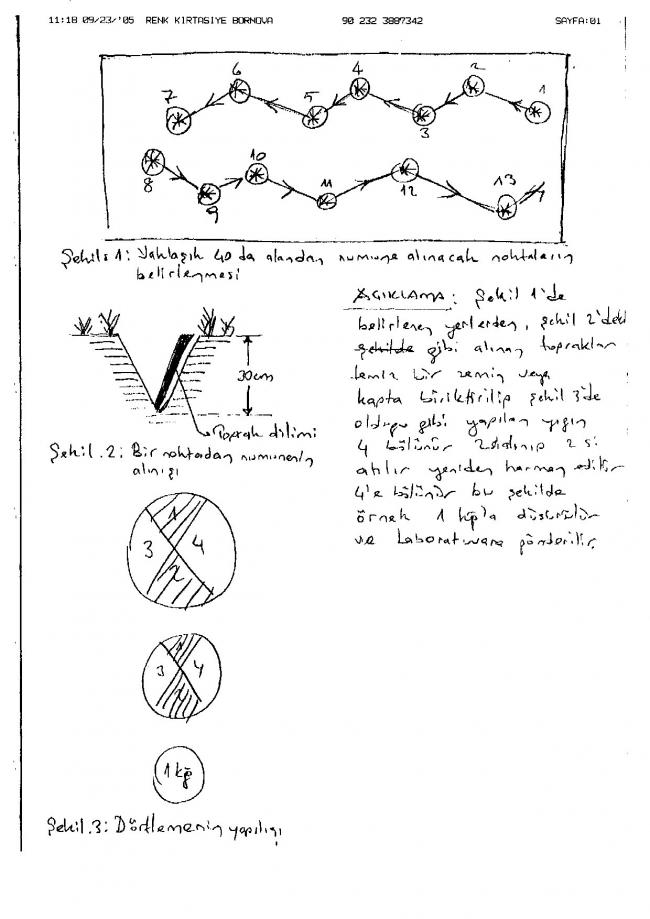 11:18 09/23/'05 RENK KIRTASIYE BORNOVA 90 232 3887342 SAYFA:01
7 6 5 4 3 2 1
8 9 10 11 12 13
Şekil: 1: Yaklaşık 40 da alandan numune alınacak noktaların
belirlenmesi
30cm
Toprak dilimi
Şekil. 2: Bir noktadan numunenin
alınışı
AÇIKLAMA: Şekil 1'de
belirlenen yerlerden, şekil 2'deki
şekilde gibi alınan topraklar
temiz bir zemin veya
kapta biriktirilip şekil 3'de
olduğu gibi yapılan yığın
4 bölünür 2si alınıp 2 si
atılır yeniden harman edilir
4'e bölünür bu şekilde
örnek 1 kg'la düşürülür
ve Laboratuvara gönderilir.
1
3 4
2
1
3 4
2
1 kg
Şekil. 3: Dörtlemenin yapılışı